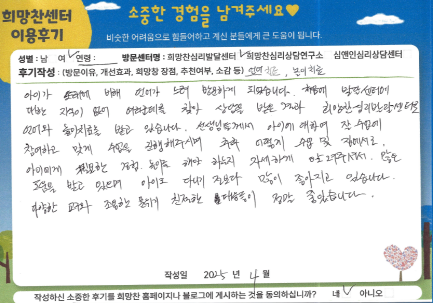 희망찬센터
이용후기
소중한 경험을 남겨주세요♥
비슷한 어려움으로 힘들어하고 계신 분들에게 큰 도움이 됩니다.
성별 : 남 여✓ 연령 : 방문센터명 : 희망찬심리발달센터 ✓희망찬심리상담연구소 심앤인심리상담센터
후기작성 : (방문이유, 개선효과, 희망찬 장점, 추천여부, 소감 등) 언어치료, 놀이치료
아이가 또래에 비해 언어가 느려 방문하게 되었습니다. 처음에 발달센터에
대한 지식이 없어 여러군데를 찾아 상담을 받은 결과 희망찬심리발달센터로
언어와 놀이치료를 받고 있습니다. 선생님들께서 아이에 대하여 잔 수업에
참여하고 맞게 수업을 진행해주시며 추후 이렇게 수업 및 집에서도
아이에게 필요한 경험, 놀이도 해야 하는지 자세하게 알려주셔서 많은
도움을 받고 있으며 아이도 다니기 전보다 많이 좋아지고 있습니다.
다양한 교구와 조용한 분위기 친절한 응대들이 정말 좋았습니다.
작성일 2025 년 4 월
작성하신 소중한 후기를 희망찬 홈페이지나 블로그에 게시하는 것을 동의하십니까? 네✓ 아니오